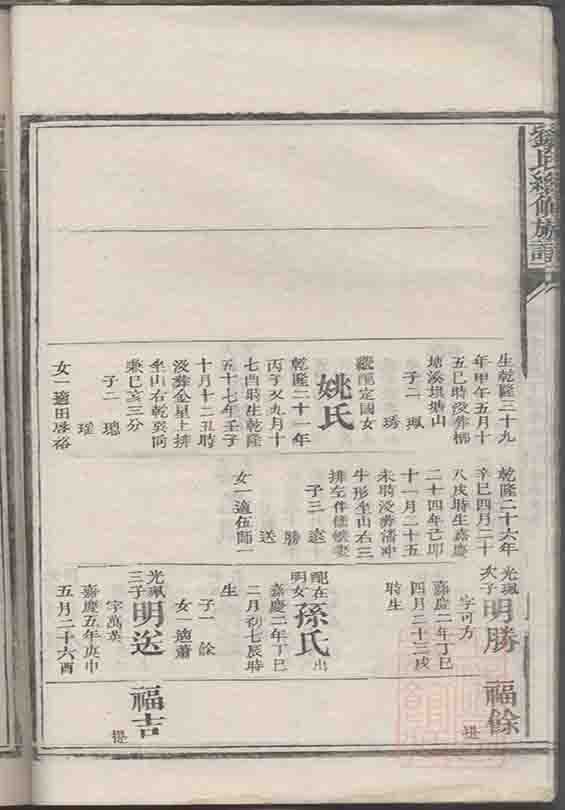 劉氏續修族譜
生乾隆三十九
年甲午五月十
五巳時沒葬柳
塘溪埧塘山
子二 珮
琇
繼配定國女
姚氏
乾隆二十一年
丙子又九月十
七酉時生乾隆
五十七年壬子
十月十二丑時
沒葬金星上排
坐山右乾巽向
兼巳亥三分
子二 璁
瑤
女一適田啓裕
乾隆二十六年
辛巳四月二十
八戌時生嘉慶
二十四年己卯
十一月二十五
未時沒葬潘冲
牛形坐山右三
排左伴
子三 逵
勝
送
女一適伍師一
光珮
次子
明勝
字可方
嘉慶二年丁巳
四月二十三戌
時生
配在
明女
孫氏
出
嘉慶二年丁巳
二月初七辰時
生
子一 餘
女一適蕭
光珮
三子
明送
字萬英
嘉慶五年庚申
五月二十六酉
福餘
福吉